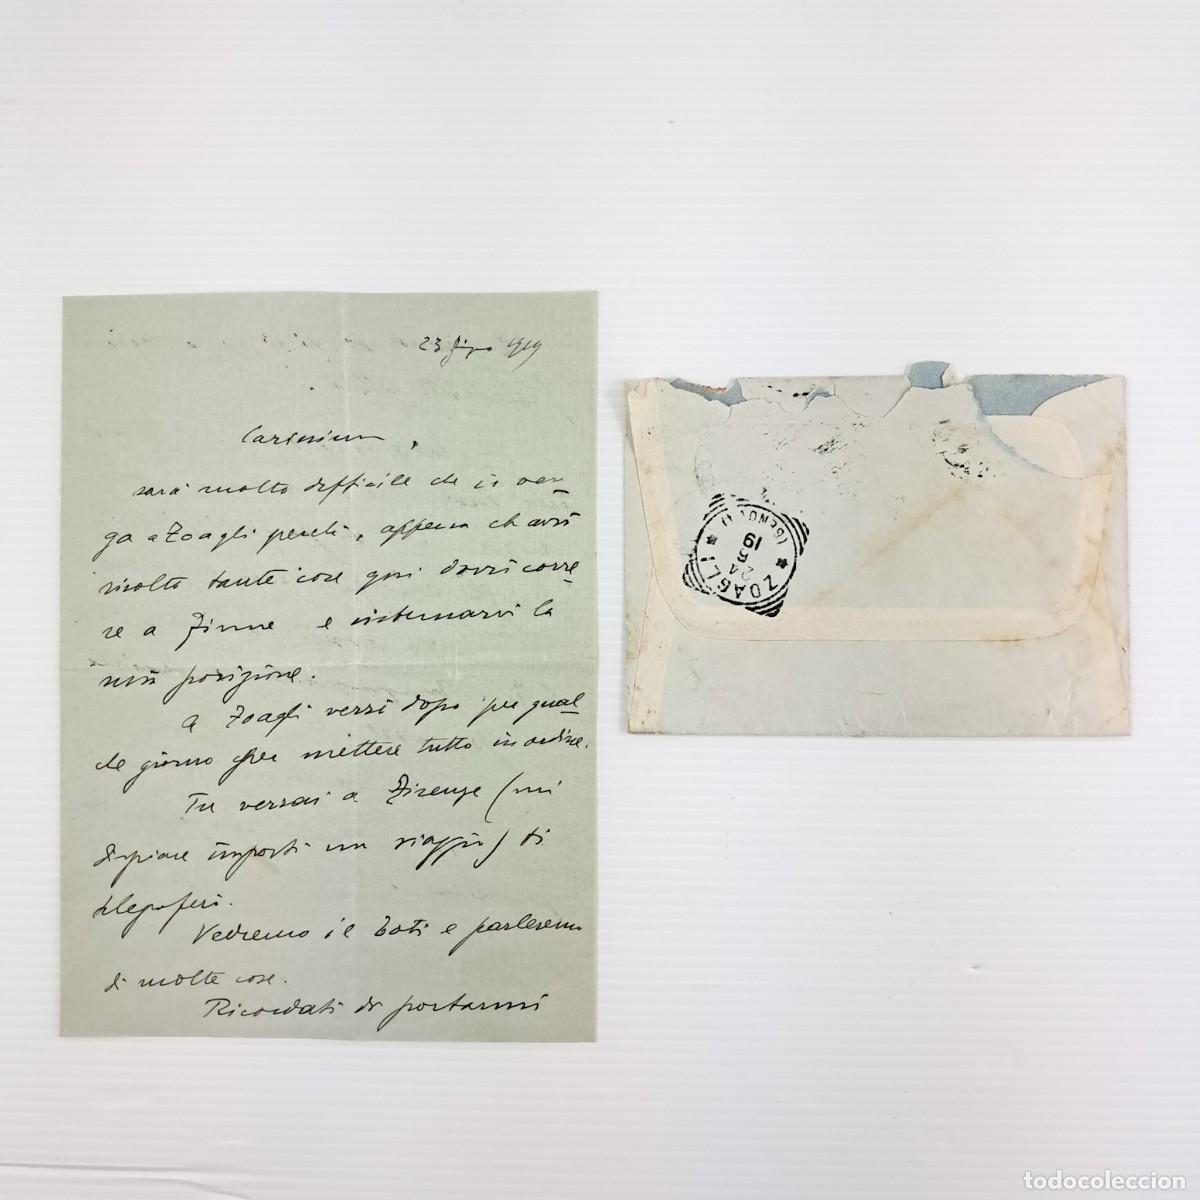 23 giugno 1919
Carissimo,
sarà molto difficile che io ven=
ga a Zoagli perchè, appena ch avrò
risolto tante cose qui dovrò corre=
re a Firenze e sistemarvi la
mia posizione.
a Zoagli verrò dopo per qual=
che giorno per mettere tutto in ordine.
Tu verrai a Firenze (mi
dispiace importi un viaggio) ti
telegraferò.
Vedremo il Boti e parleremo
di molte cose.
Ricordati di portarmi
ZOAGLI
(GENOVA)
24
19
todocoleccion